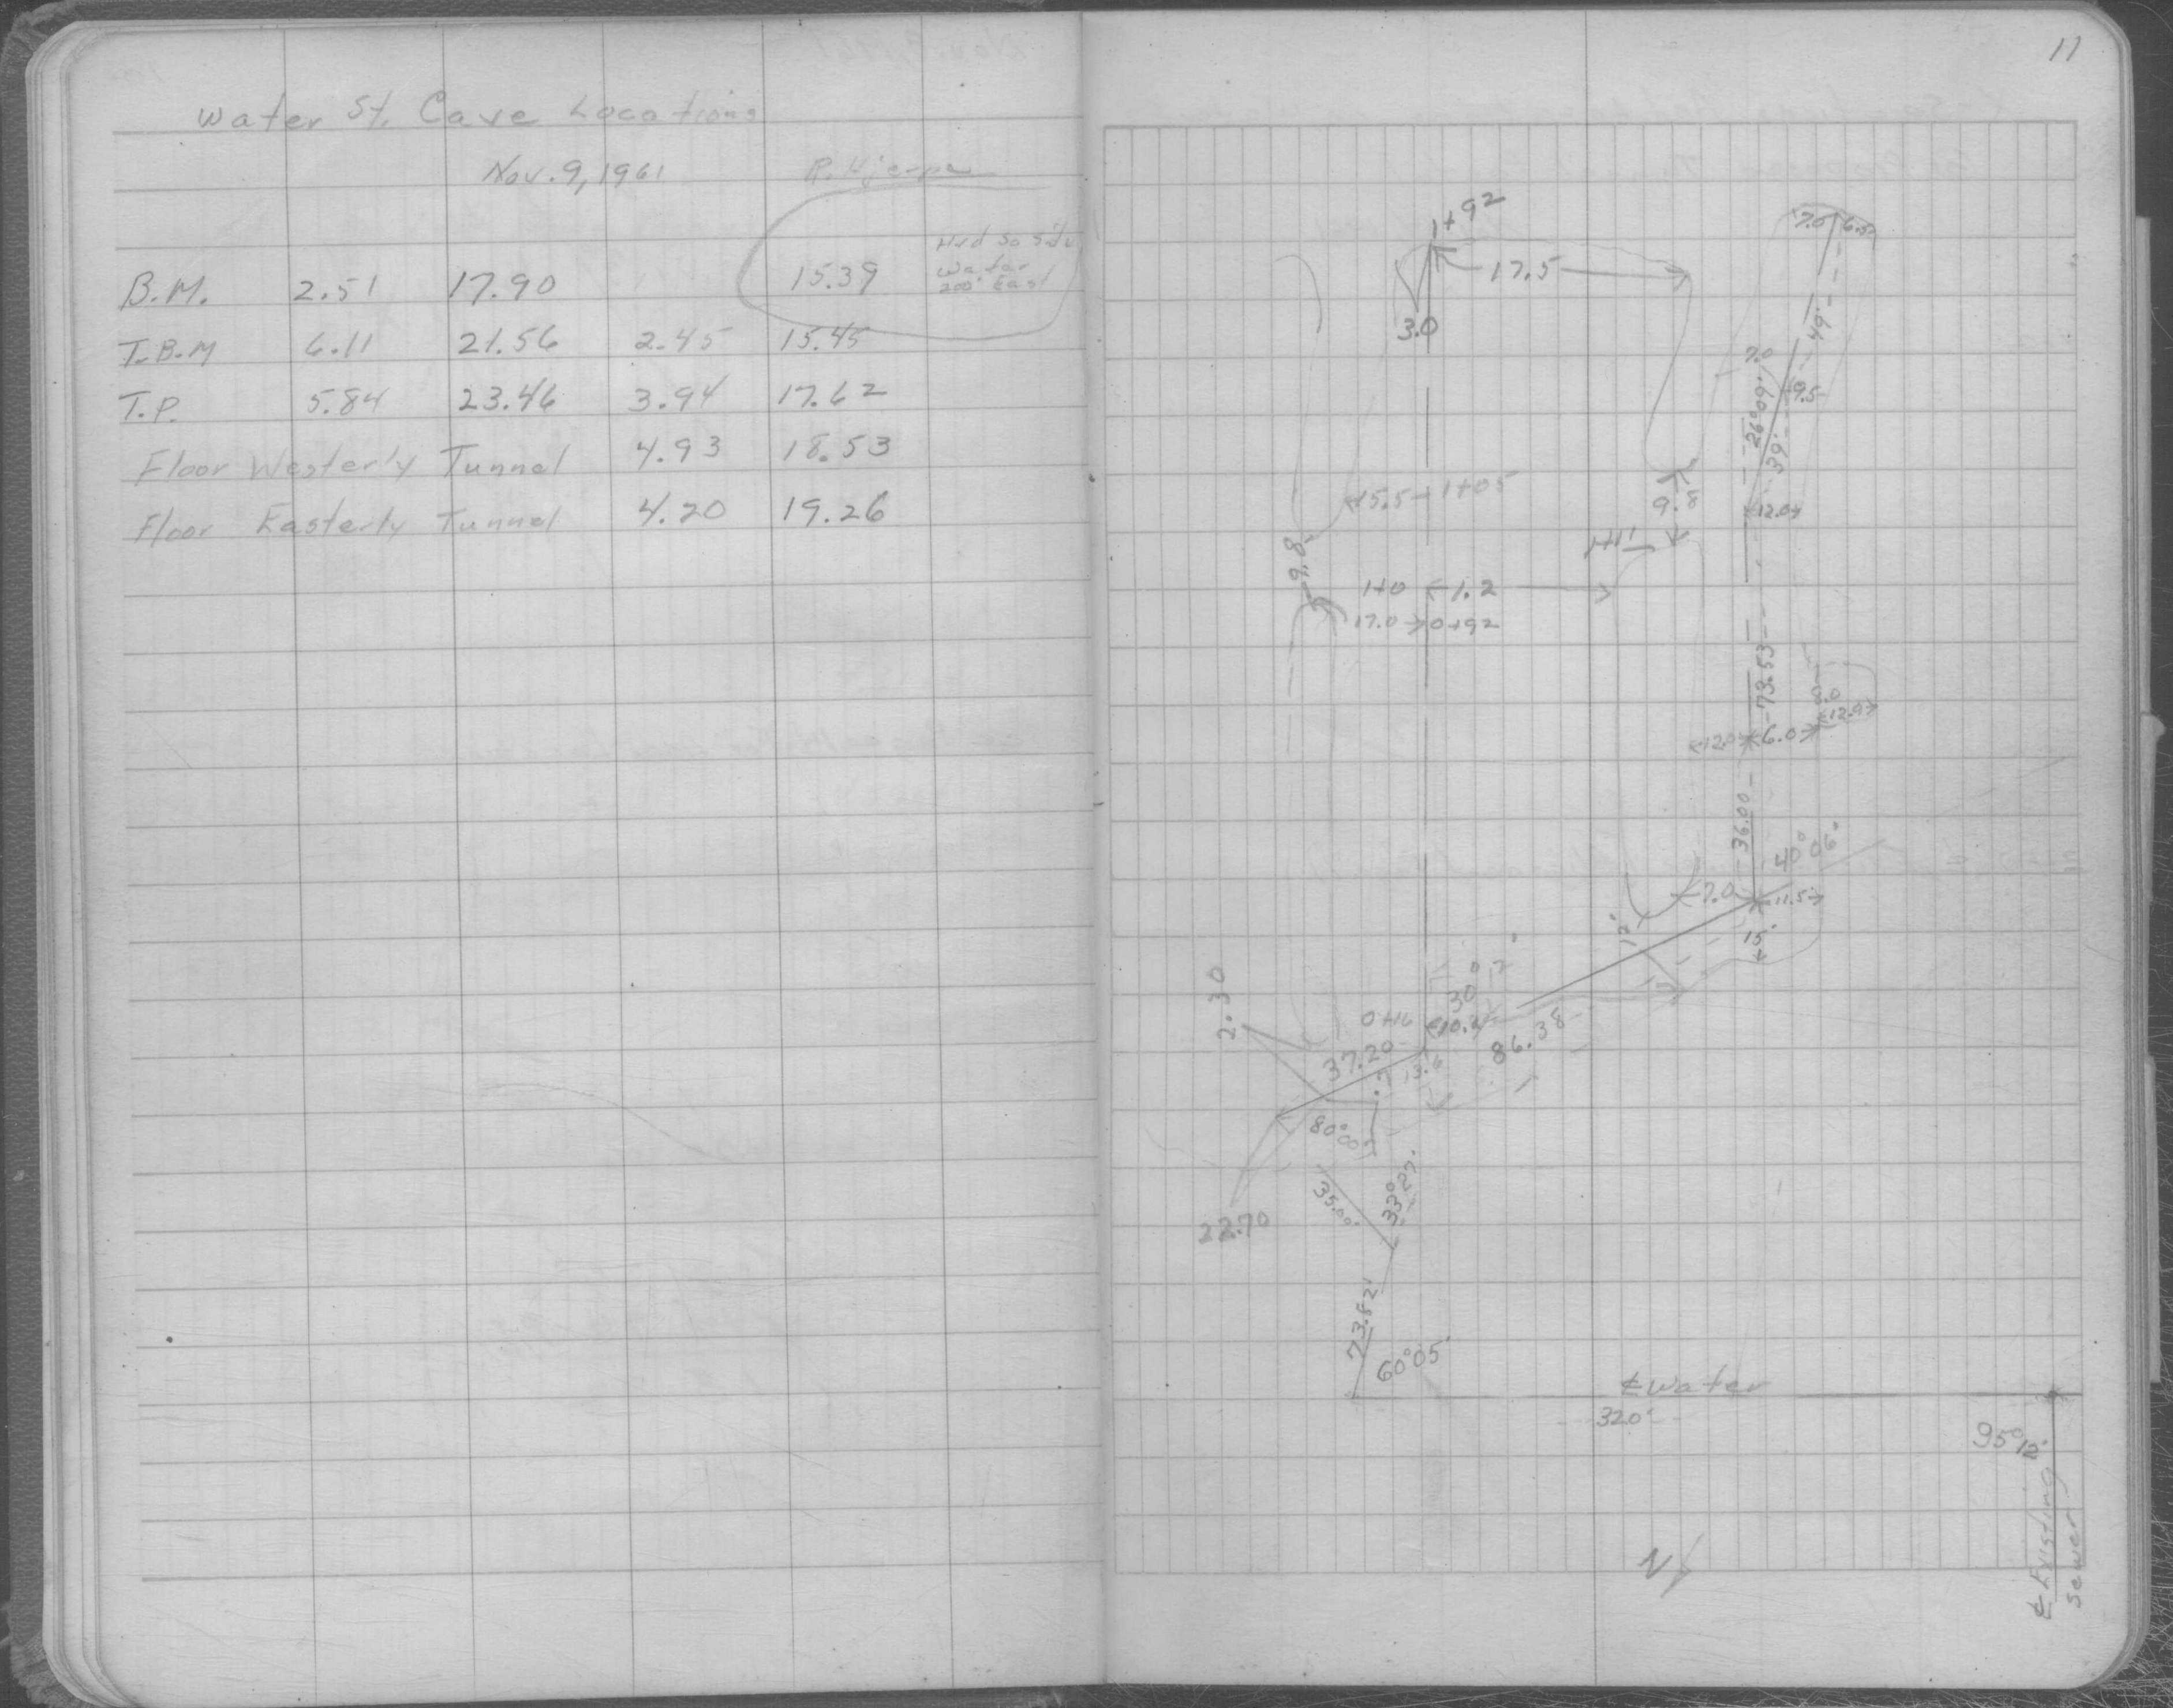 11
Water St. Cave Locations
Nov. 9, 1961
Hyd So Side
Water
200' East
B.M. 2.51 17.90 15.39
T.B.M 6.11 21.56 2.45 15.45
T.P. 5.84 23.46 3.94 17.62
Floor Westerly Tunnel 4.93 18.53
Floor Easterly Tunnel 4.20 19.26
1+92
17.5
3.0
7.0 6.5
49'
7.0
26°09'
9.5
39'
12.0
15.5 1+05
9.8
1+11
9.8
1+0 1.2
17.0 0+92
73.53
8.0
12.9
12.0 6.0
36.00
40°06'
7.0 11.5
15'
12'
2.30
0+16
37.20
13.6
86.38
80°00'
35.00'
33°27'
22.70
73.82'
60°05'
℄ Water
320'
95°12'
N
℄ Existing
Sewer